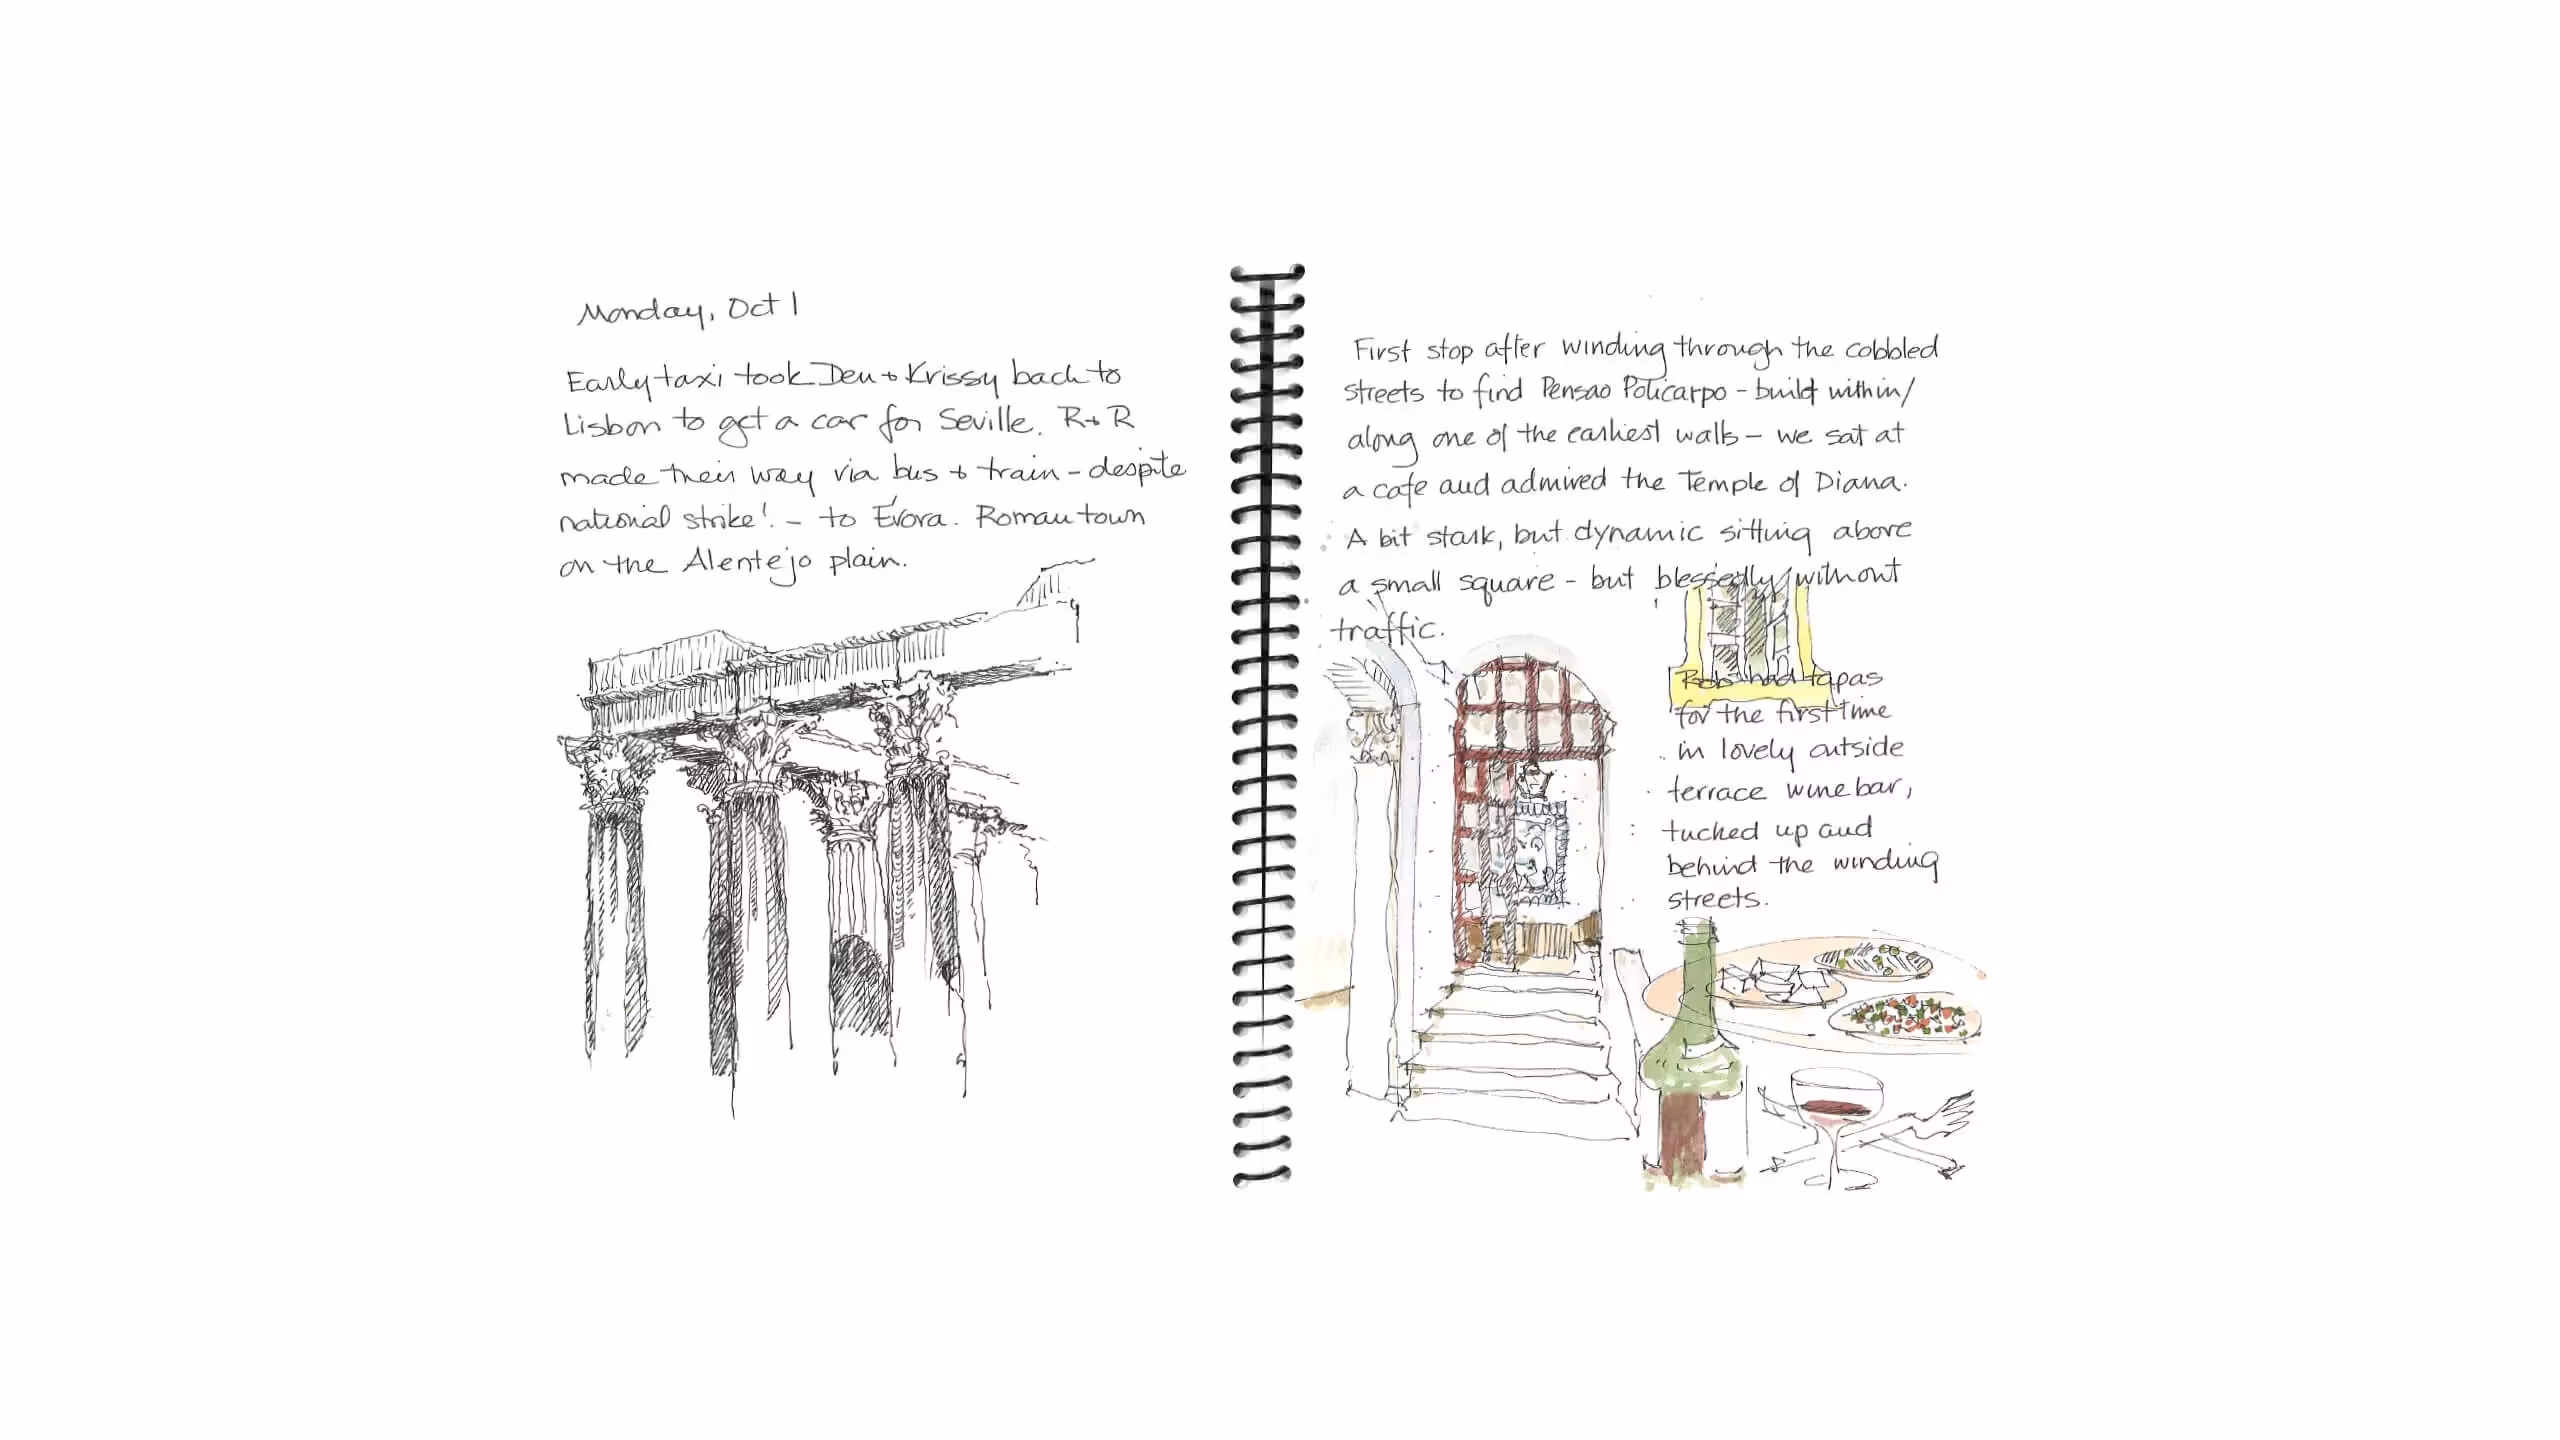 Monday, Oct 1
Early taxi took Den + Krissy back to
Lisbon to get a car for Seville. R+R
made their way via bus + train - despite
national strike! - to Évora. Roman town
on the Alentejo plain.
First stop after winding through the cobbled
streets to find Pensao Policarpo - build within/
along one of the earliest walls - we sat at
a cafe and admired the Temple of Diana.
A bit stark, but dynamic sitting above
a small square - but blessedly without
traffic.
Rob had tapas
for the first time
in lovely outside
terrace wine bar,
tucked up and
behind the winding
streets.